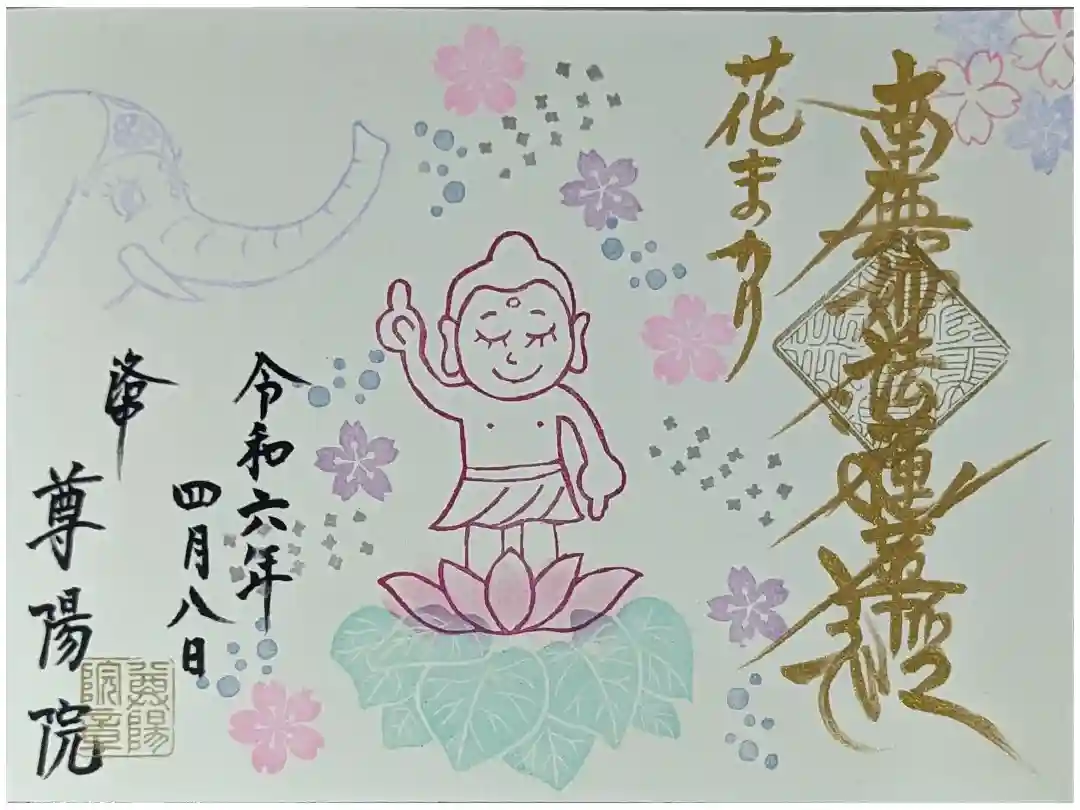 南無妙法蓮華経
花まつり
令和六年
四月八日
尊陽院
尊陽院章